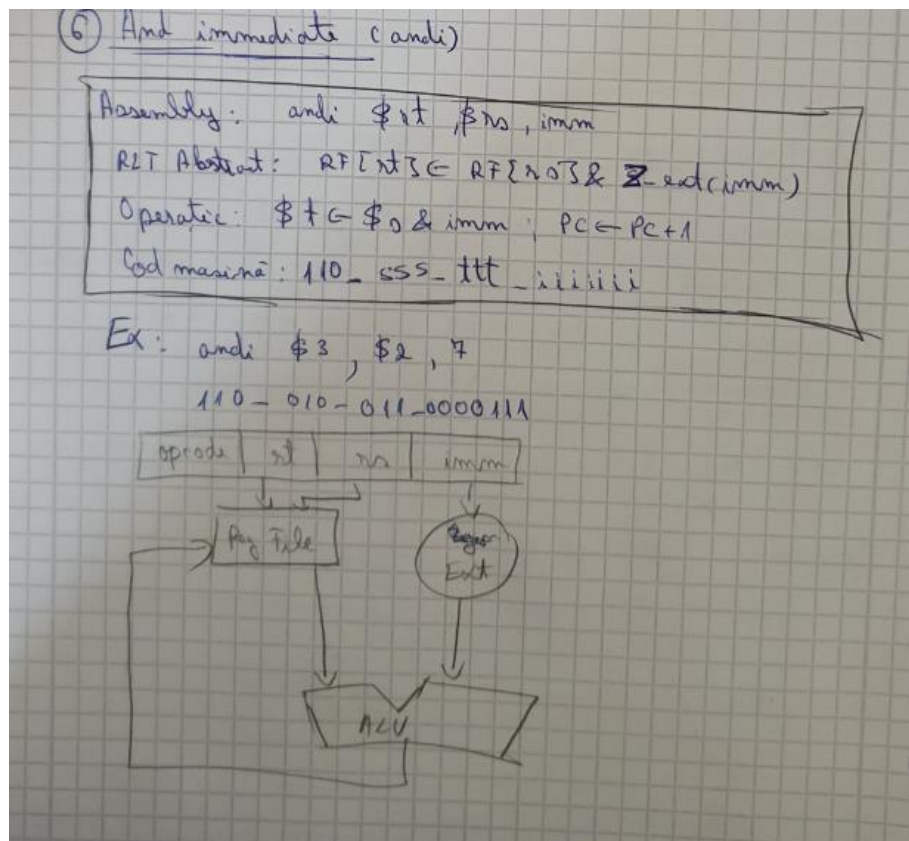 6 And immediate (andi)
Assembly: andi $rt, $rs, imm
RLT Abstract: RF[rt] ← RF[rs] & Z_ext(imm)
Operatie: $t ← $s & imm; PC ← PC+1
Cod masină: 110_sss_ttt_iiiiiii
Ex: andi $3, $2, 7
110_010_011_0000111
opcode rt rs imm
Reg File
Ext
ALU